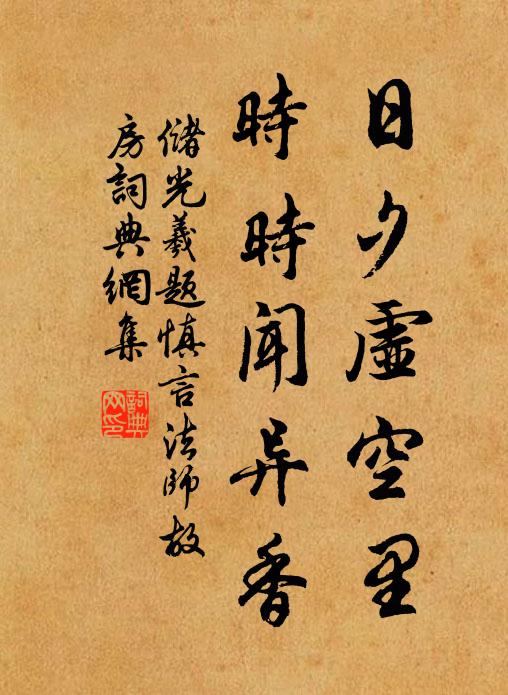 日夕虛空里
時時聞异香
儲光羲題慎言法師故
房詞典網集
詞典
网印